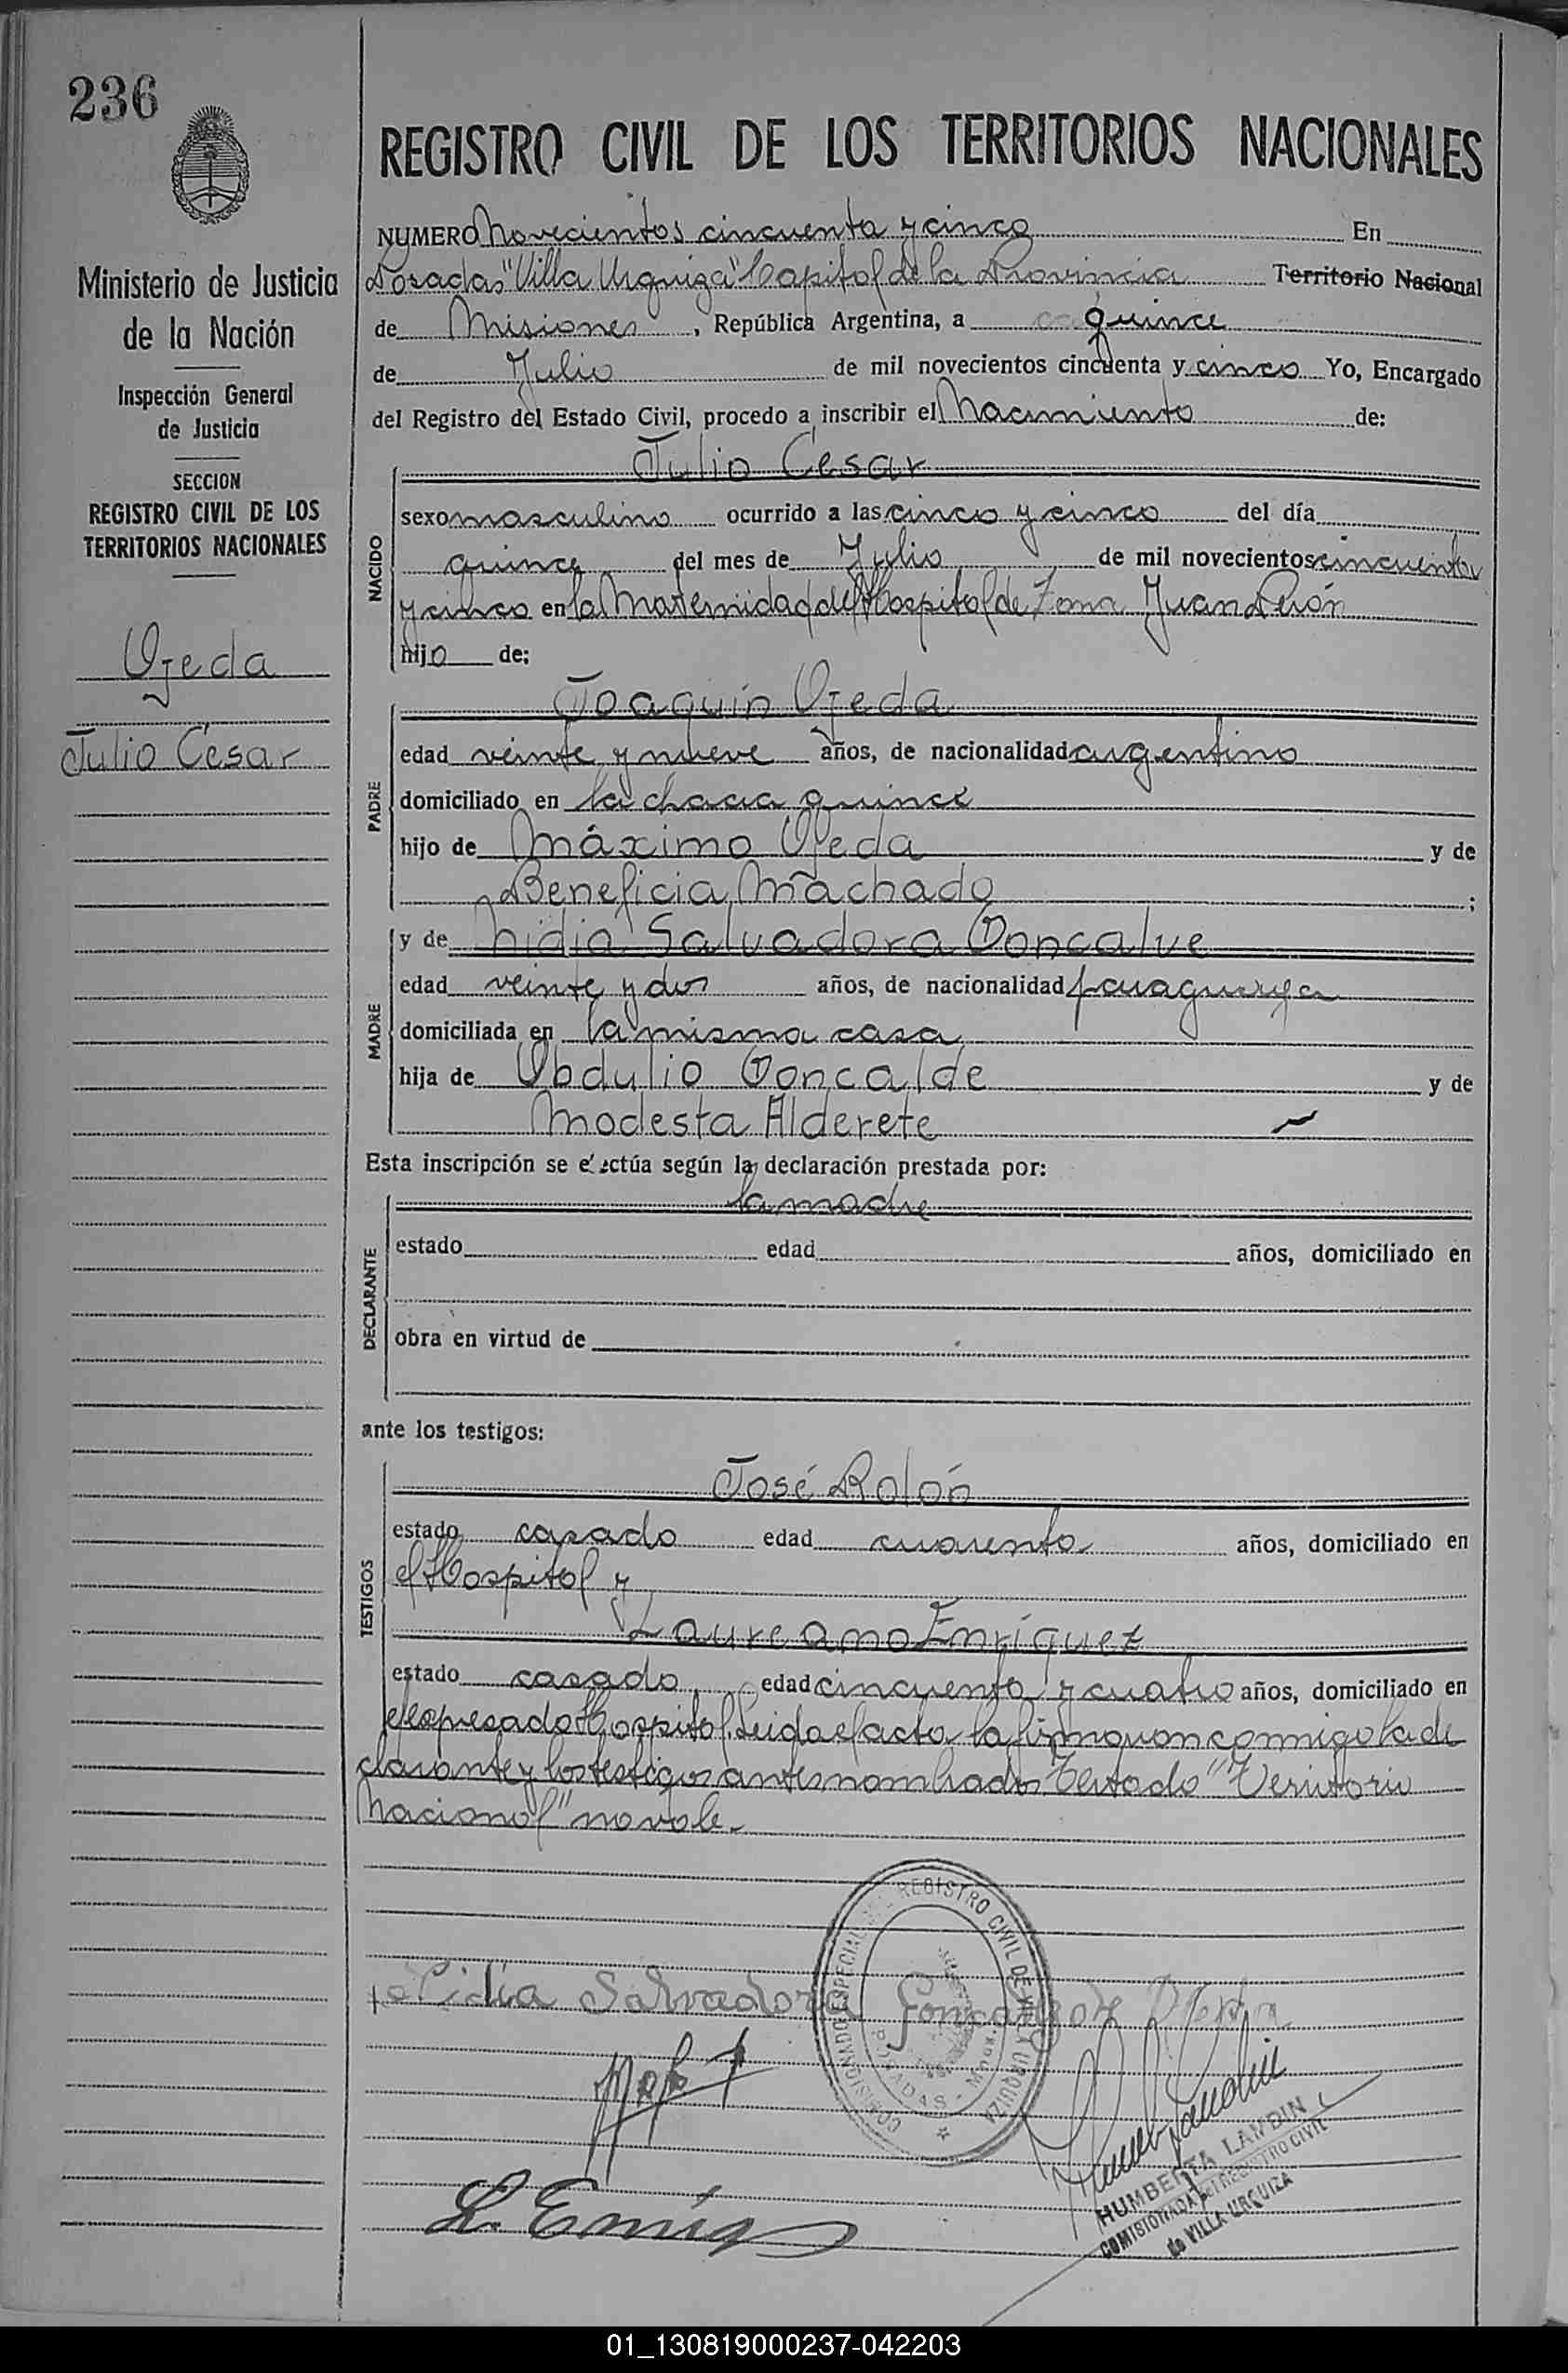 236
REGISTRO CIVIL DE LOS TERRITORIOS NACIONALES
Ministerio de Justicia
de la Nación
Inspección General
de Justicia
SECCION
REGISTRO CIVIL DE LOS
TERRITORIOS NACIONALES
Ojeda
Julio César
NUMERO Novecientos cincuenta y cinco En
Posadas "Villa Urquiza" Capital de la Provincia Territorio Nacional
de Misiones, República Argentina, a quince
de Julio de mil novecientos cincuenta y cinco Yo, Encargado
del Registro del Estado Civil, procedo a inscribir el Nacimiento de:
NACIDO
Julio César
sexo masculino ocurrido a las cinco y cinco del día
quince del mes de Julio de mil novecientos cincuenta
y cinco en la Maternidad del Hospital de Zona Juan Perón
hijo de:
PADRE
Joaquin Ojeda
edad veinte y nueve años, de nacionalidad argentino
domiciliado en la chacra quince
hijo de Máximo Ojeda y de
Beneficia Machado ;
MADRE
y de Nidia Salvadora Goncalve
edad veinte y dos años, de nacionalidad paraguaya
domiciliada en la misma casa
hija de Obdulio Goncalde y de
Modesta Alderete
Esta inscripción se efectúa según la declaración prestada por:
DECLARANTE
la madre
estado edad años, domiciliado en
obra en virtud de
ante los testigos:
TESTIGOS
José Rolón
estado casado edad cuarenta años, domiciliado en
el Hospital y
Laureano Enríquez
estado casado edad cincuenta y cuatro años, domiciliado en
el expresado Hospital. Leida el acta la firman conmigo la de
clarante y los testigos antes nombrados Testado "Territorio
Nacional" no vale.-
COMISIONADO ESPECIAL REGISTRO CIVIL DE VILLA URQUIZA
POSADAS - Mnes.
Salvadora
L. Enríq
HUMBERTA LANDIN
COMISIONADA del REGISTRO CIVIL
de VILLA URQUIZA
01_130819000237-042203